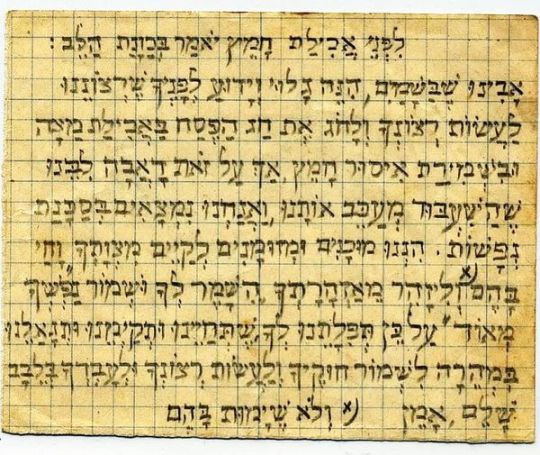 לִפְנֵי אֲכִילַת חָמֵץ יֹאמַר בְּכַוָּנַת הַלֵּב :
אָבִינוּ שֶׁבַּשָּׁמַיִם, הִנֵּה גָלוּי וְיָדוּעַ לְפָנֶיךָ שֶׁרְצוֹנֵנוּ
לַעֲשׂוֹת רְצוֹנְךָ וְלָחֹג אֶת חַג הַפֶּסַח בַּאֲכִילַת מַצָּה
וּבִשְׁמִירַת אִיסוּר חָמֵץ, אַךְ עַל זֹאת דָּאֲבָה לִבֵּנוּ
שֶׁהַשִּׁעְבּוּד מְעַכֵּב אוֹתָנוּ, וַאֲנַחְנוּ נִמְצָאִים בְּסַכָּנַת
נְפָשׁוֹת. הִנְנוּ מוּכָנִים וּמְזוּמָּנִים לְקַיֵּים מִצְוָתְךָ "וָחַי
בָּהֶם" (x וְלִיזָּהֵר מֵאַזְהָרָתְךָ "הִשָּׁמֶר לְךָ וּשְׁמוֹר נַפְשְׁךָ
מְאוֹד" עַל כֵּן תְּפִלָּתֵנוּ לְךָ שֶׁתְּחַיֵּינוּ וּתְקַיְּמֵנוּ וְתִגְאָלֵנוּ
בִּמְהֵרָה לִשְׁמוֹר חוּקֶיךָ וְלַעֲשׂוֹת רְצוֹנְךָ וּלְעָבְדְּךָ בְּלֵבָב
שָׁלֵם, אָמֵן (x וְלֹא שֶׁיָּמוּת בָּהֶם